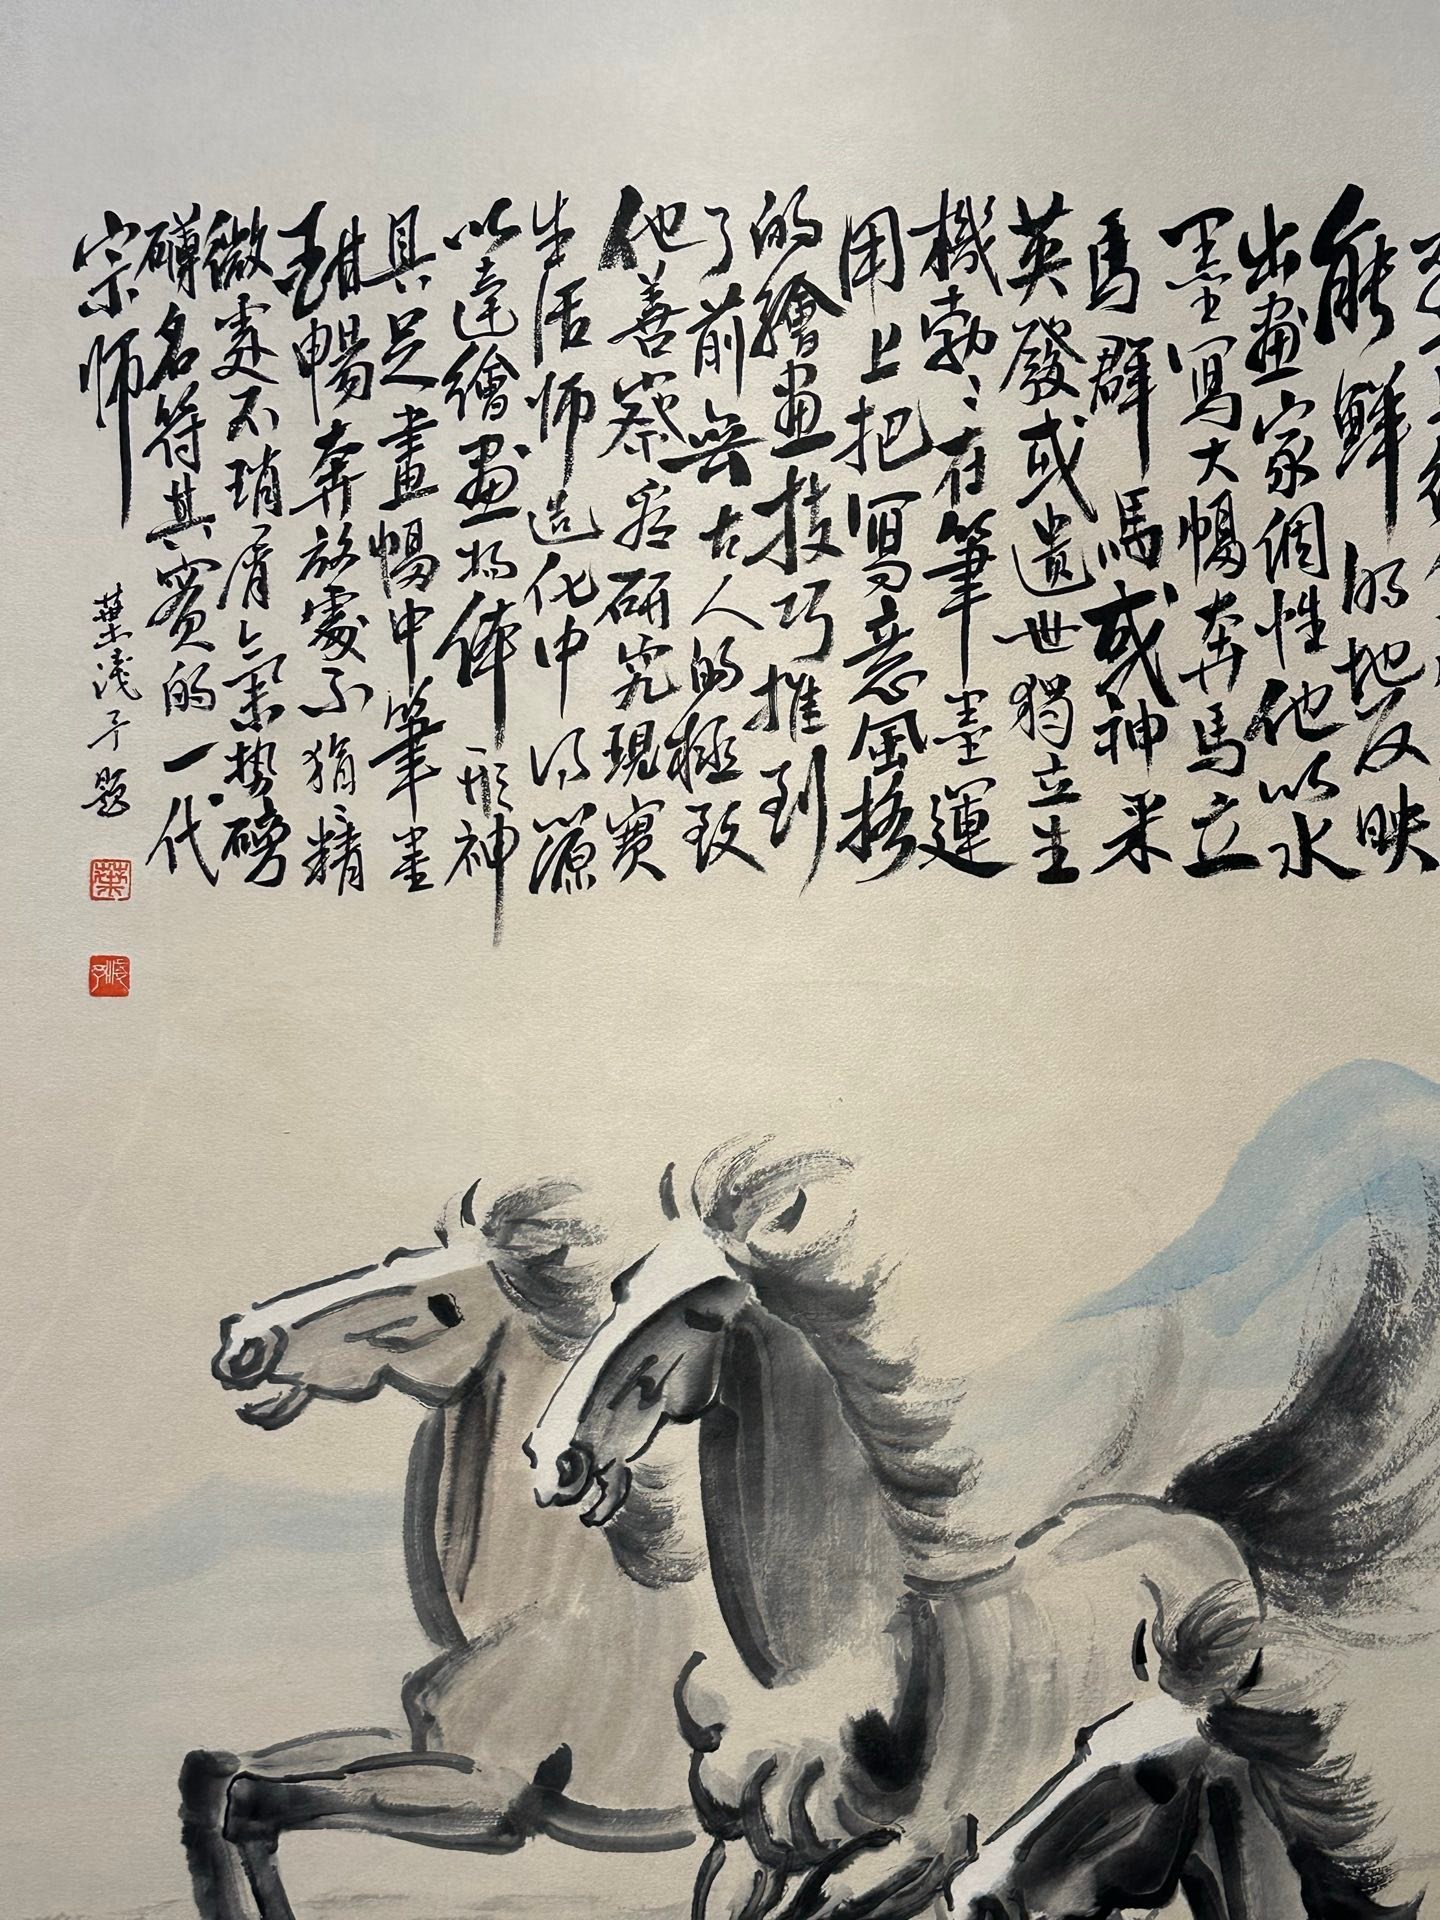 能鲜明地反映
出畫家個性他以水
墨寫大幅奔馬立
馬群馬或神采
英發或遗世獨立生
機勃〻在筆墨運
用上把寫意風格
的繪畫技巧推到
了前無古人的極致
他善察看研究現實
生活师造化中得源
以達繪畫物体形神
具足畫幅中筆墨
酣暢奔放處不狷精
微處不琐屑氣势磅
礴名符其實的一代
宗师
葉浅予題
葉
浅予